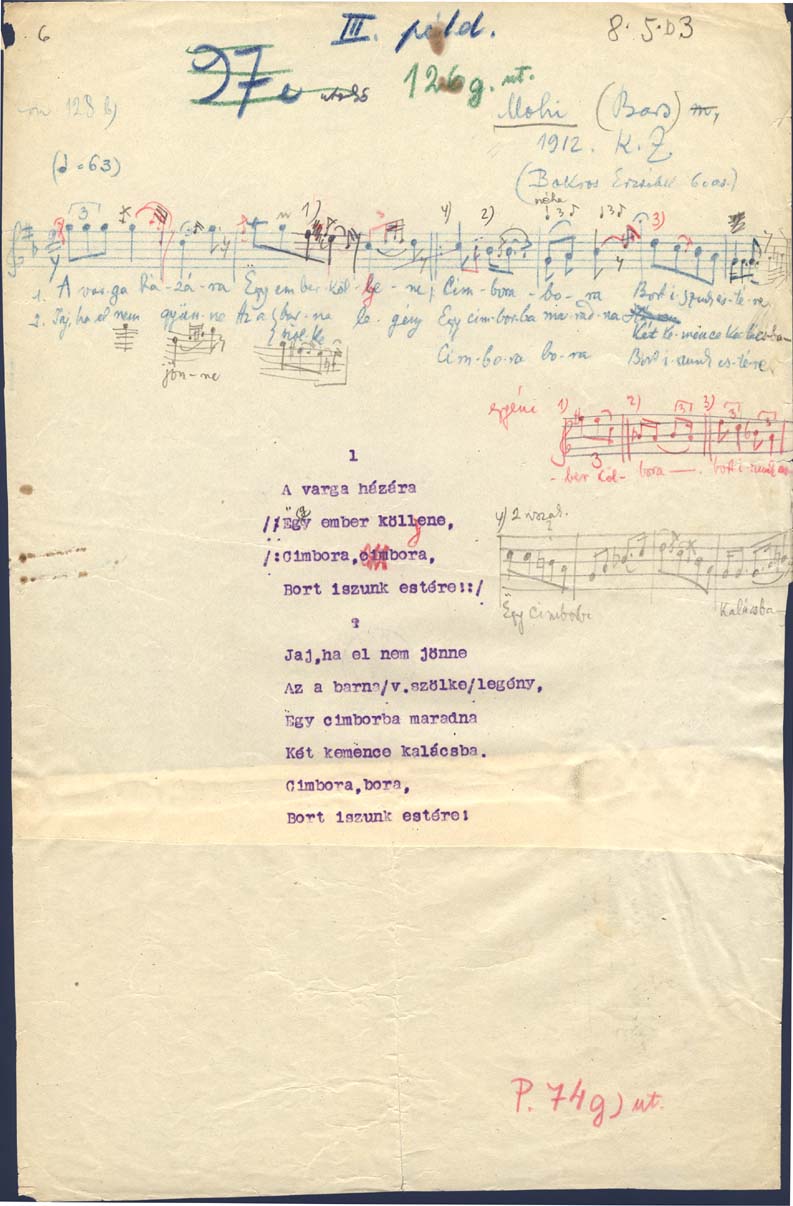 6
III. péld. 8.5.03
97e utolsó 126g. ut.
128 b)
Mohi (Bars) m,
1912. K. Z.
(♩=63)
(Bakros Erzsébet 6. os.)
néha
3 1) 4) 2) 3)
1. A varga há-zá-ra Ëgy em ber köl-le-ne, Cim-bora-bo-ra Bort i-szunk es-té-re
2. Jaj, ha el nem gyün-ne Az a bar-na le-gény Egy cim-bor-ba ma-rad-na Két ke-mënce ka-lács-ba
szöl-ke
jön-ne Cim-bo-ra bo-ra Bort i-szunk es-té-re
egyéni 1) 2) 3) 3)
3
-ber köl- bora bort i-szunk es
1
A varga házára
//Ëgy ember köllene,
/:Cimbora,cimbora,
Bort iszunk estére::/
4) 2 vszak.
Ëgy cimbobi Kalácsba
2
Jaj,ha el nem jönne
Az a barna/v.szölke/legény,
Egy cimborba maradna
Két kemence kalácsba.
Cimbora,bora,
Bort iszunk estére!
P. 74g) ut.